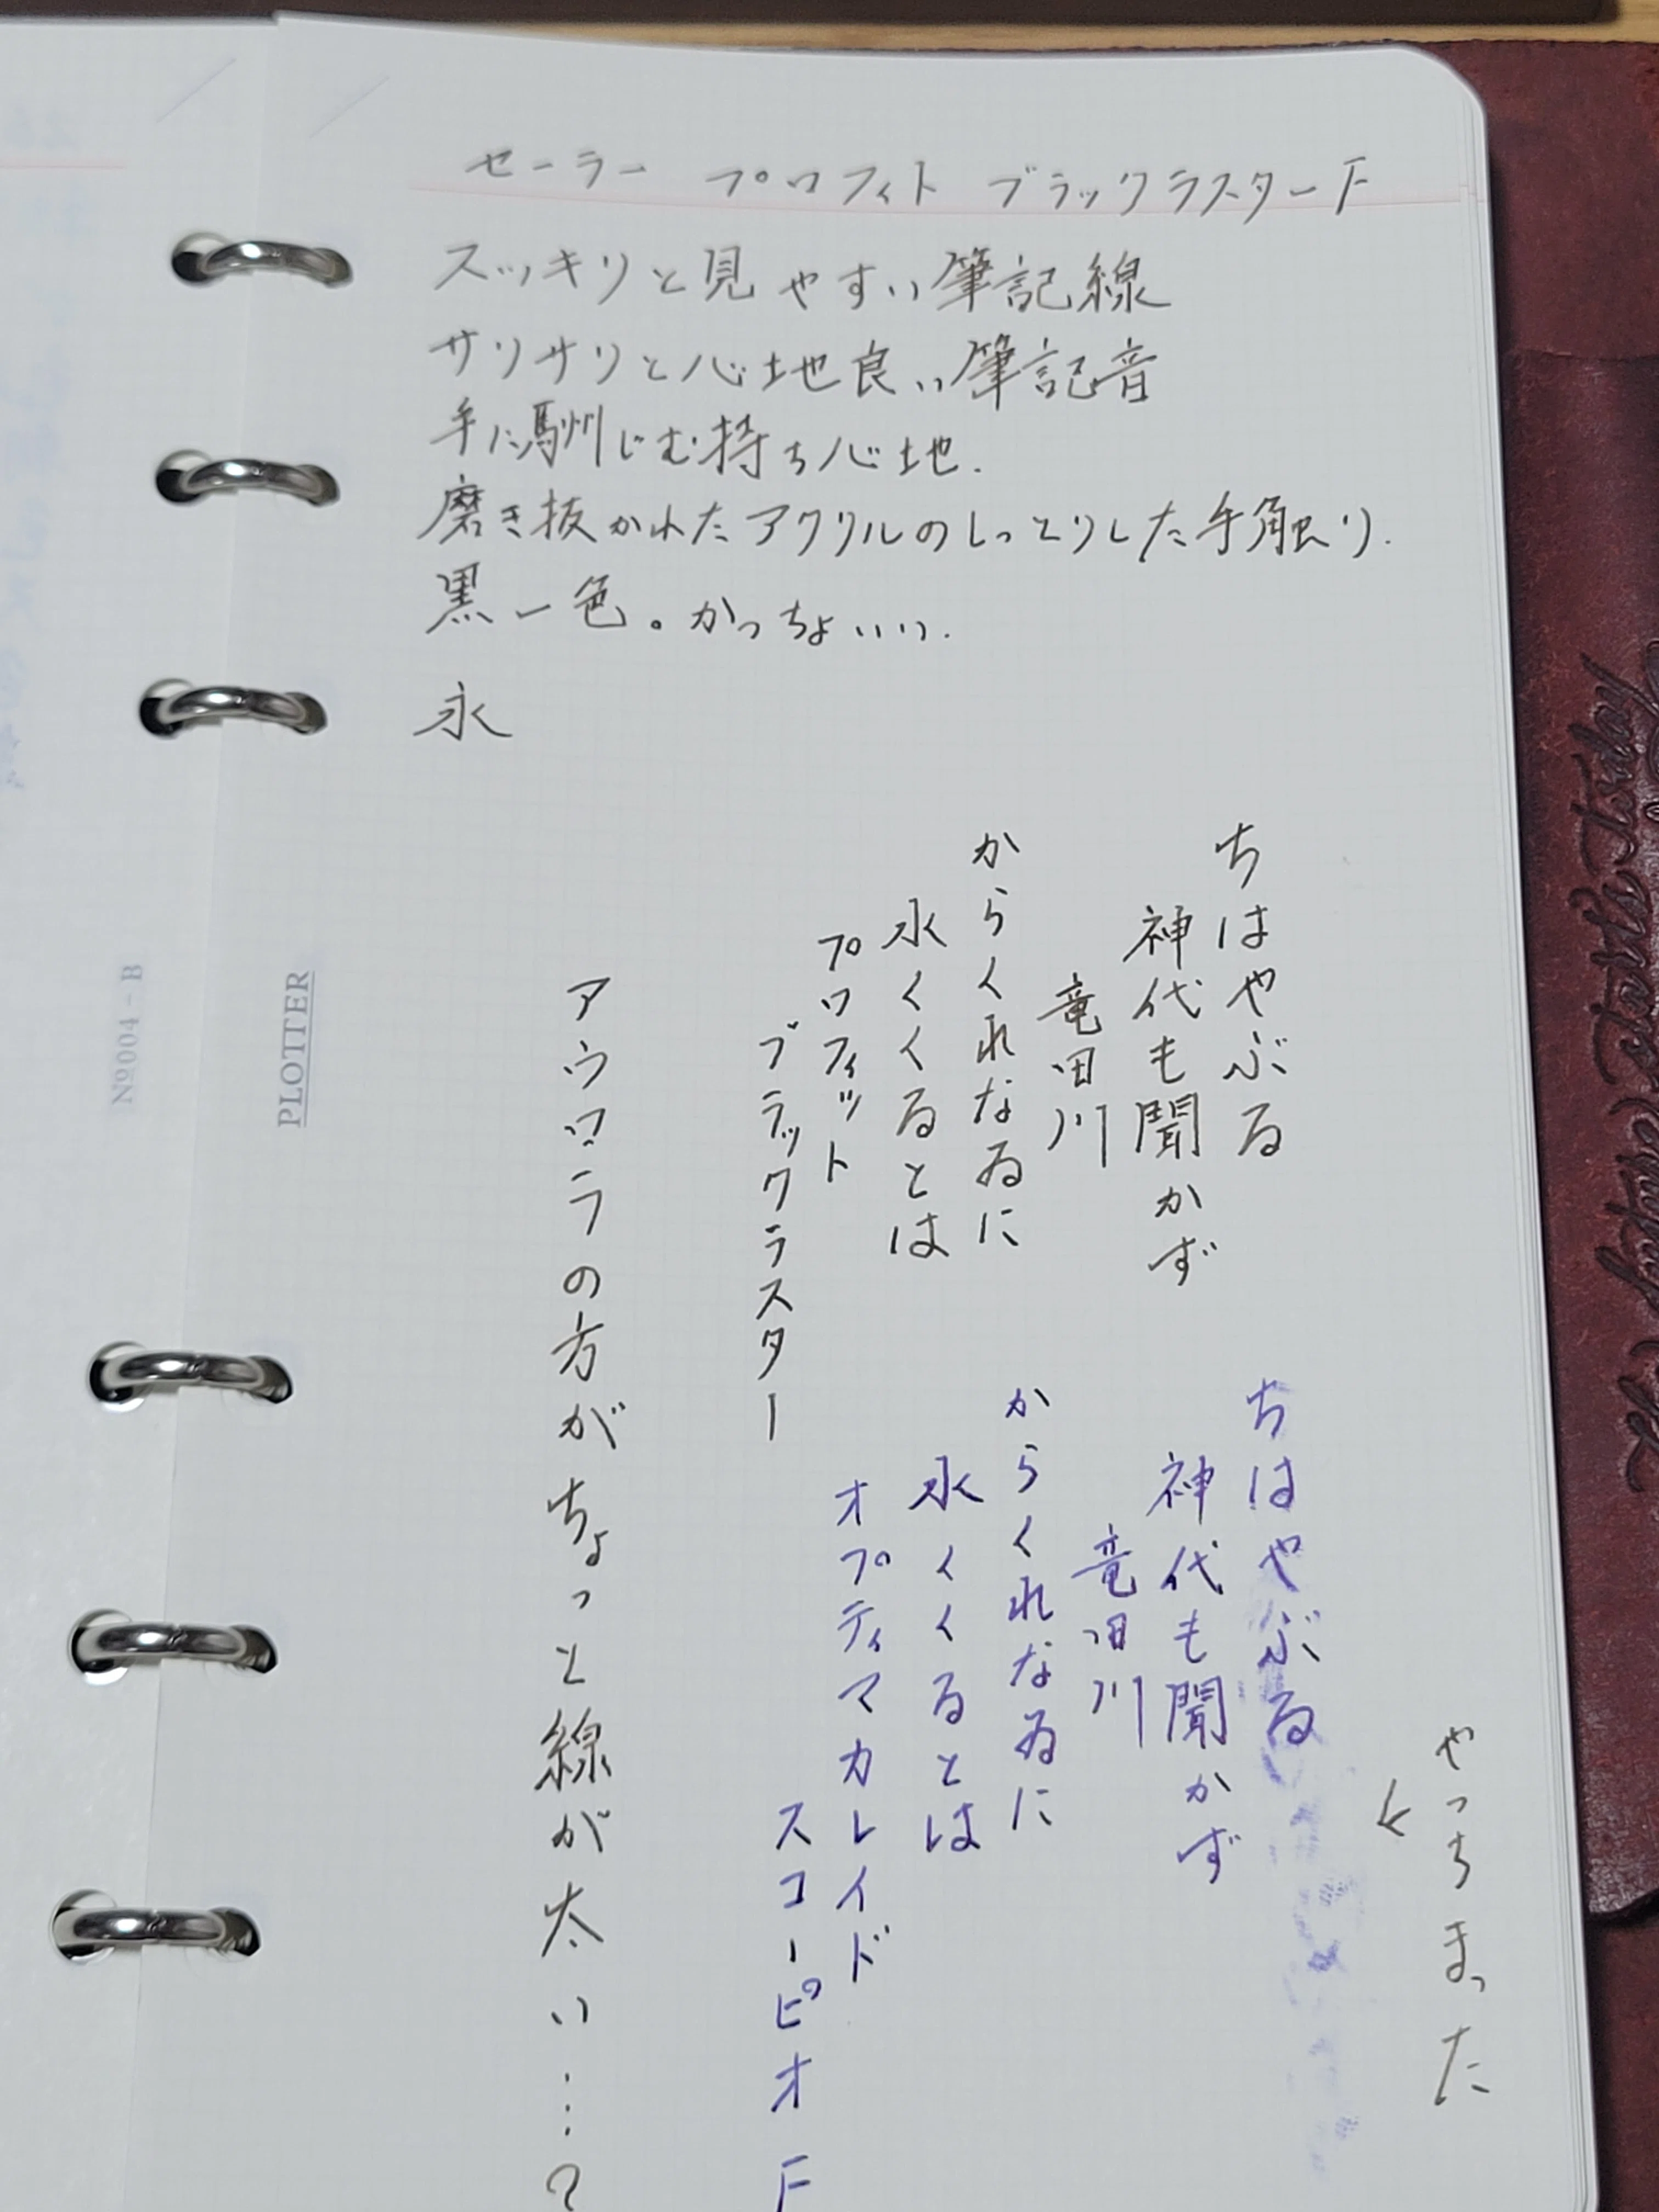 セーラー プロフィト ブラックラスターF
スッキリと見やすい筆記線
サリサリと心地良い筆記音
手に馴じむ持ち心地.
磨き抜かれたアクリルのしっとりした手触り.
黒一色。かっちょいいい.
永
ちはやぶる
神代も聞かず
竜田川
からくれなゐに
水くくるとは
プロフィット
ブラックラスター
ちはやぶる
神代も聞かず
竜田川
からくれなゐに
水くくるとは
オプティマカレイド
スコーピオF
やっちまった
アウロラの方がちょっと線が太い…?
PLOTTER
Nº004-B